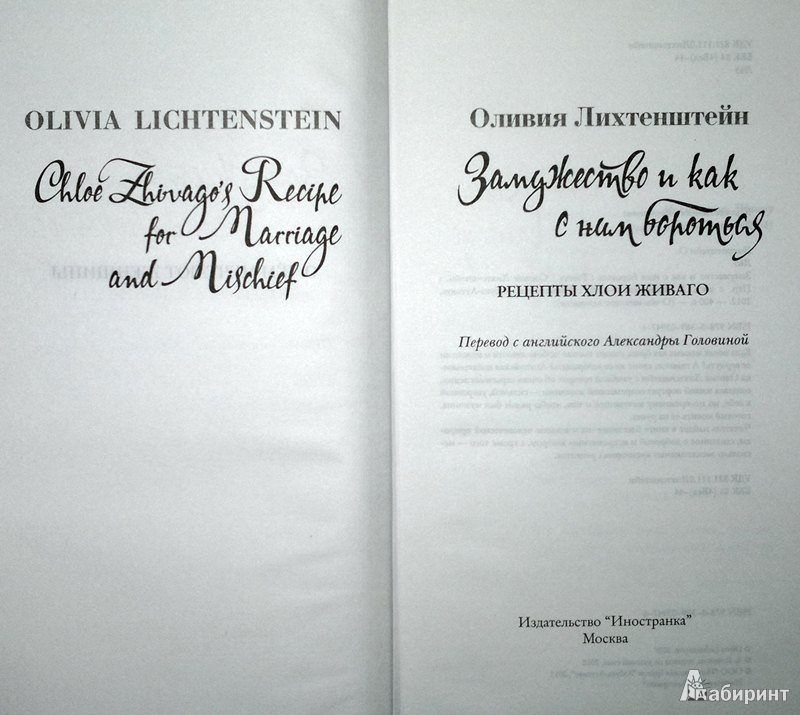 OLIVIA LICHTENSTEIN
Chloe Zhivago's Recipe
for Marriage
and Mischief
Оливия Лихтенштейн
Замужество и как
с ним бороться
РЕЦЕПТЫ ХЛОИ ЖИВАГО
Перевод с английского Александры Головиной
Издательство “Иностранка”
Москва
Лабиринт